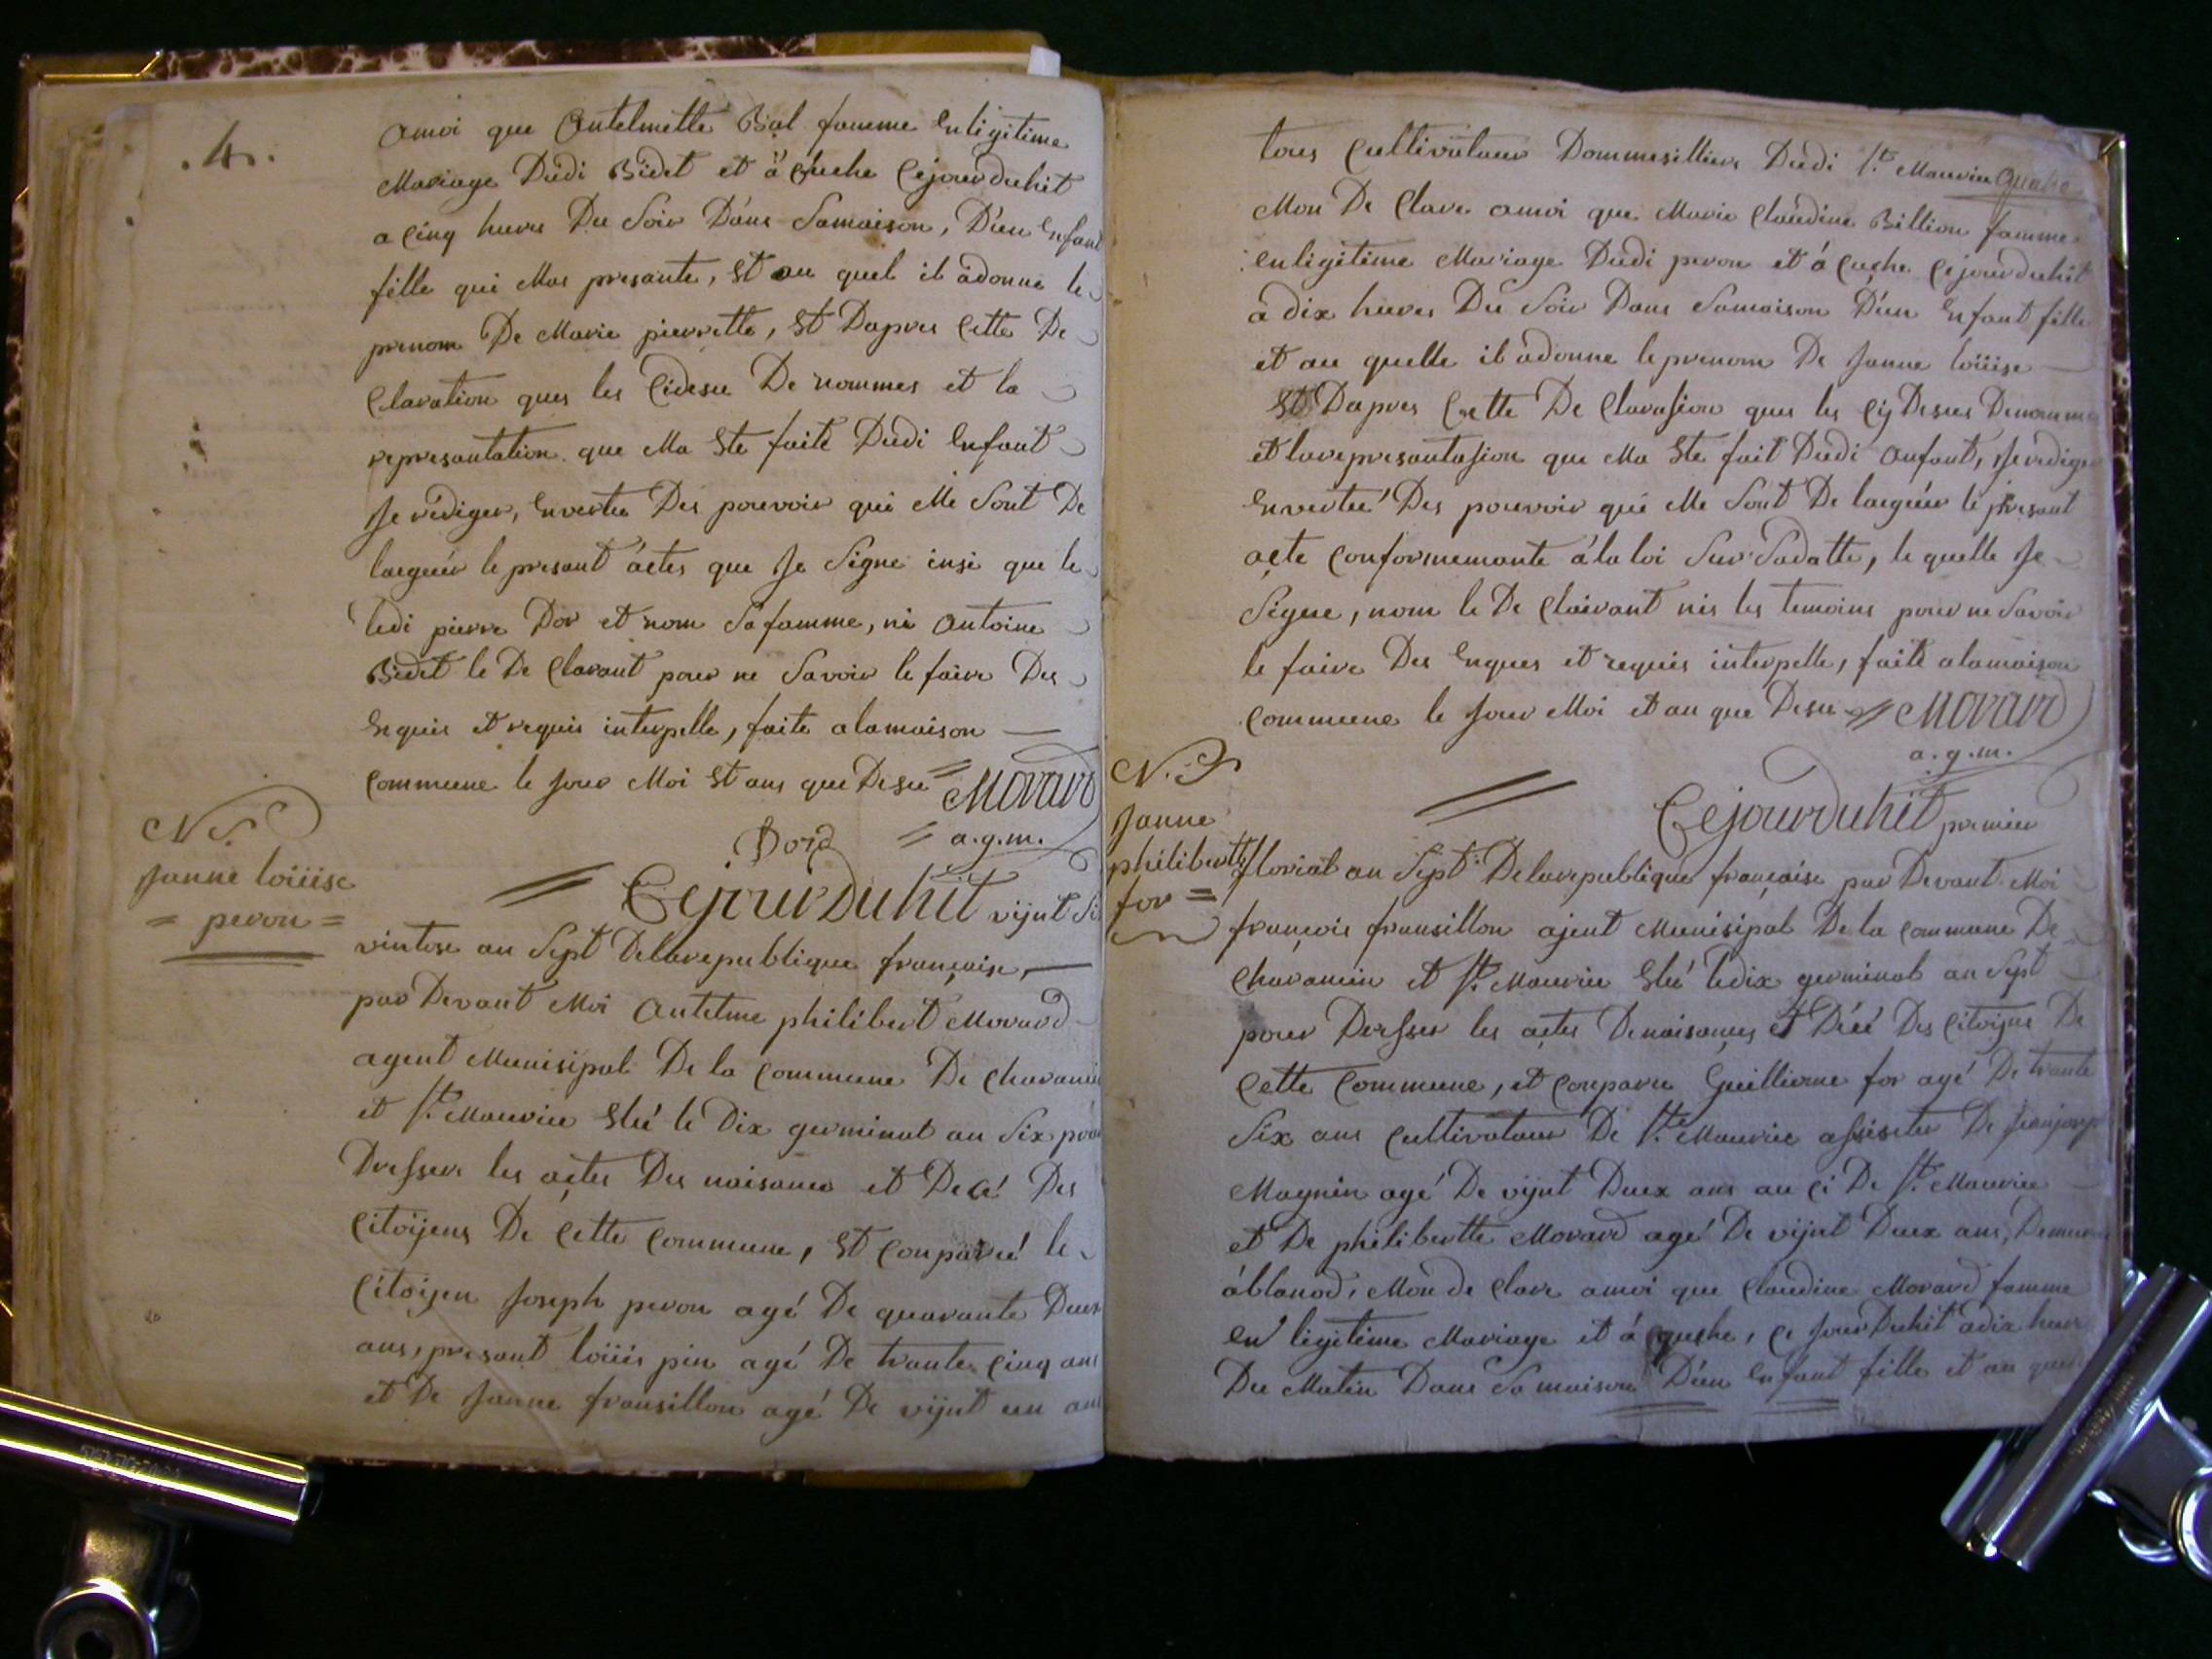 .4.
amoi que Antelmette Bal famme Enligitime
Mariage Dudi Bidet et à Cuche Cejourduhit
a Cinq heures Du Soir Dans Samaison, D'un Enfant
fille qui Mas presante, Et au quel il adonne le
prenom De Marie pierrette, Et Dapres Cette De
Claration ques les Cidesu De nommes et la
represantation que Ma Ete faite Dudi Enfant
Je rédiger, Envertu Des pouvoir qui Me Sont De
laeguér le presant áctes que Je Signe insi que le
ledi pierre Dor et nom Sa famme, ni Antoine
Bidet le De Clarant pour ne Savoir le faire Des
Enquis et requis interpelle, faite alamaison
Commune le Jour Moi Et ans que Desu = Morard
Dord = a.g.m.
N.
Janne loüise
= peron =
= Cejourduhit vijnt Si
vintose an Sept Delarepublique française,
par Devant Moi Antelme philibert Morard
agent Munisipal De la Commune De Chavanin
et St. Maurice Elu le Dix germinal an Six pour
Dresser les actes Des naisance et Decé Des
Citoijens De Cette Commune, Et Conparu le
Citoijen Joseph peron agé De quarante Deux
ans, presant loüis pin agé De trante Cinq ans
et De Janne fransillon agé De vijnt un ans
tous Cultivateur Dommesillies Dudi St. Maurice quatre
Mon De Clare amoi que Marie Claudine Billion famme
enligitime Mariage Dudi peron et á Cuche Cejourduhit
a dix heures Du Soir Dans Samaison D'un Enfant fille
et au quelle il adonne le prenom De Janne loüise
Et Dapres Cette De Clarasion ques les Cij Desus Denomme
et larepresantasion que Ma Ete fait Dudi anfant, Je rediger
Envertu Des pouvoir qui Me Sont De laeguér le presant
acte Conformemante á la loi Sur Sadatte, le quelle Je
Signe, nom le De Clairant nis les temoins pour ne Savoir
le faire Des Enques et requis interpelle, faite alamaison
Commune le Jour Moi et an que Desu = Morard
a.g.m.
N.
Janne
philibertte
for =
= Cejourduhit premier
florial an Sept Delarepublique française par Devant Moi
françois fransillon ajent Munisipal De la Commune De
Chavanin et St. Maurice Elu ledix germinal an Sept
pour Dresser les actes Denaisances et Décé Des Citoijns De
Cette Commune, et Conparu Guilliome for agé De trante
Six ans Cultivateur De St. Maurice assister De Jeanjoseph
Magnin agé De vijnt Deux ans au Ci De St. Maurice
et De philibertte Morard agé De vijnt Deux ans, Demeurant
áblanod, Mon de Clare amoi que Claudine Morard famme
en ligitime Mariage et á Cuche, Ce Jour Duhit adix heures
Du Matin Dans Sa maison D'un Enfant fille et au quel